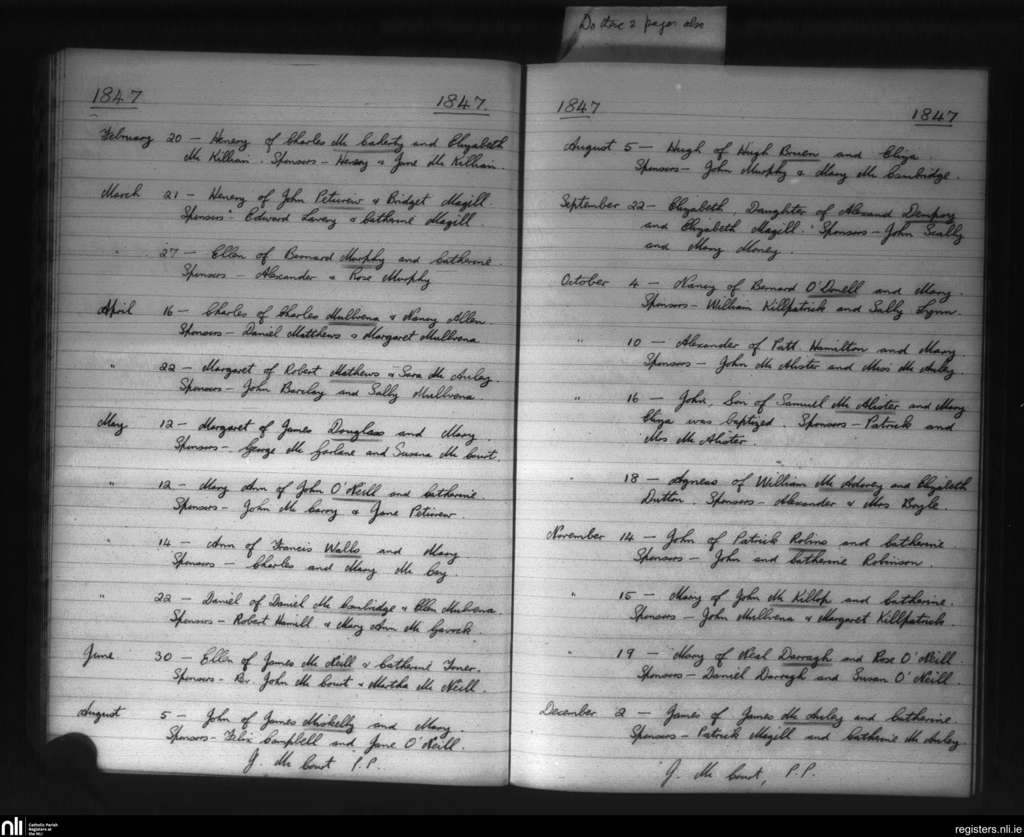 Do these 2 pages also
1847 1847
February 20 – Henery of Charles Mc Caherty and Elizabeth
Mc Killian. Sponsors – Henery & Jane Mc Killian.
March 21 – Henery of John Peturew & Bridget Magill.
Sponsors " Edward Lavery & Catherine Magill.
" 27 – Ellen of Bernard Murphy and Catherine.
Sponsors – Alexander & Rose Murphy
April 16 – Charles of Charles Mullvena & Nancy Allen.
Sponsors – Daniel Matthews & Margaret Mullvena
" 22 – Margaret of Robert Mathews & Sara Mc Auley.
Sponsors – John Barclay and Sally Mullvena.
May 12 – Margaret of James Douglass and Mary.
Sponsors – George Mc Garlane and Susana Mc Court.
" 12 – Mary Ann of John O'Neill and Catherine.
Sponsors – John Mc Carry & Jane Peturew.
" 14 – Ann of Francis Walls and Mary
Sponsors – Charles and Mary Mc Cay.
" 22 – Daniel of Daniel Mc Cambridge & Ellen Mulvena.
Sponsors – Robert Hamill & Mary Ann Mc Gavock.
June 30 – Ellen of James Mc Neill & Catherine
Sponsors – Rev. John Mc Court & Martha Mc Neill.
August 5 – John of James Miskelly and Mary.
Sponsors – Felix Campbell and Jane O'Neill.
J. Mc Court P.P.
1847 1847
August 5 – Hugh of Hugh Bruen and Eliza.
Sponsors – John Murphy & Mary Mc Cambridge.
September 22 – Elizabeth, Daughter of Alexand Dempsey
and Elizabeth Magill. " Sponsors – John Scally
and Mary Money.
October 4 – Nancy of Bernard O'Donell and Mary.
Sponsors – William Killpatrick and Sally Lynn.
" 10 – Alexander of Patt. Hamilton and Mary.
Sponsors – John Mc Alister and Miss Mc Auley.
" 16 – John, Son of Samuel Mc Alister and Mary
Eliza was baptized. Sponsors – Patrick and
Mrs Mc Alister.
" 18 – Agneas of William Mc Adorey and Elizabeth
Dutton. Sponsors – Alexander & Mrs Boyle.
November 14 – John of Patrick Robins and Catherine.
Sponsors – John and Catherine Robinson.
" 15 – Mary of John Mc Killop and Catherine.
Sponsors – John Mullvena & Margaret Killpatrick.
" 19 – Mary of Neal Darragh and Rose O'Neill.
Sponsors – Daniel Darragh and Susan O'Neill.
December 2 – James of James Mc Auley and Catherine.
Sponsors – Patrick Magill and Catherine Mc Auley
J. Mc Court, P.P.
nli Catholic Parish Registers at the NLI
registers.nli.ie